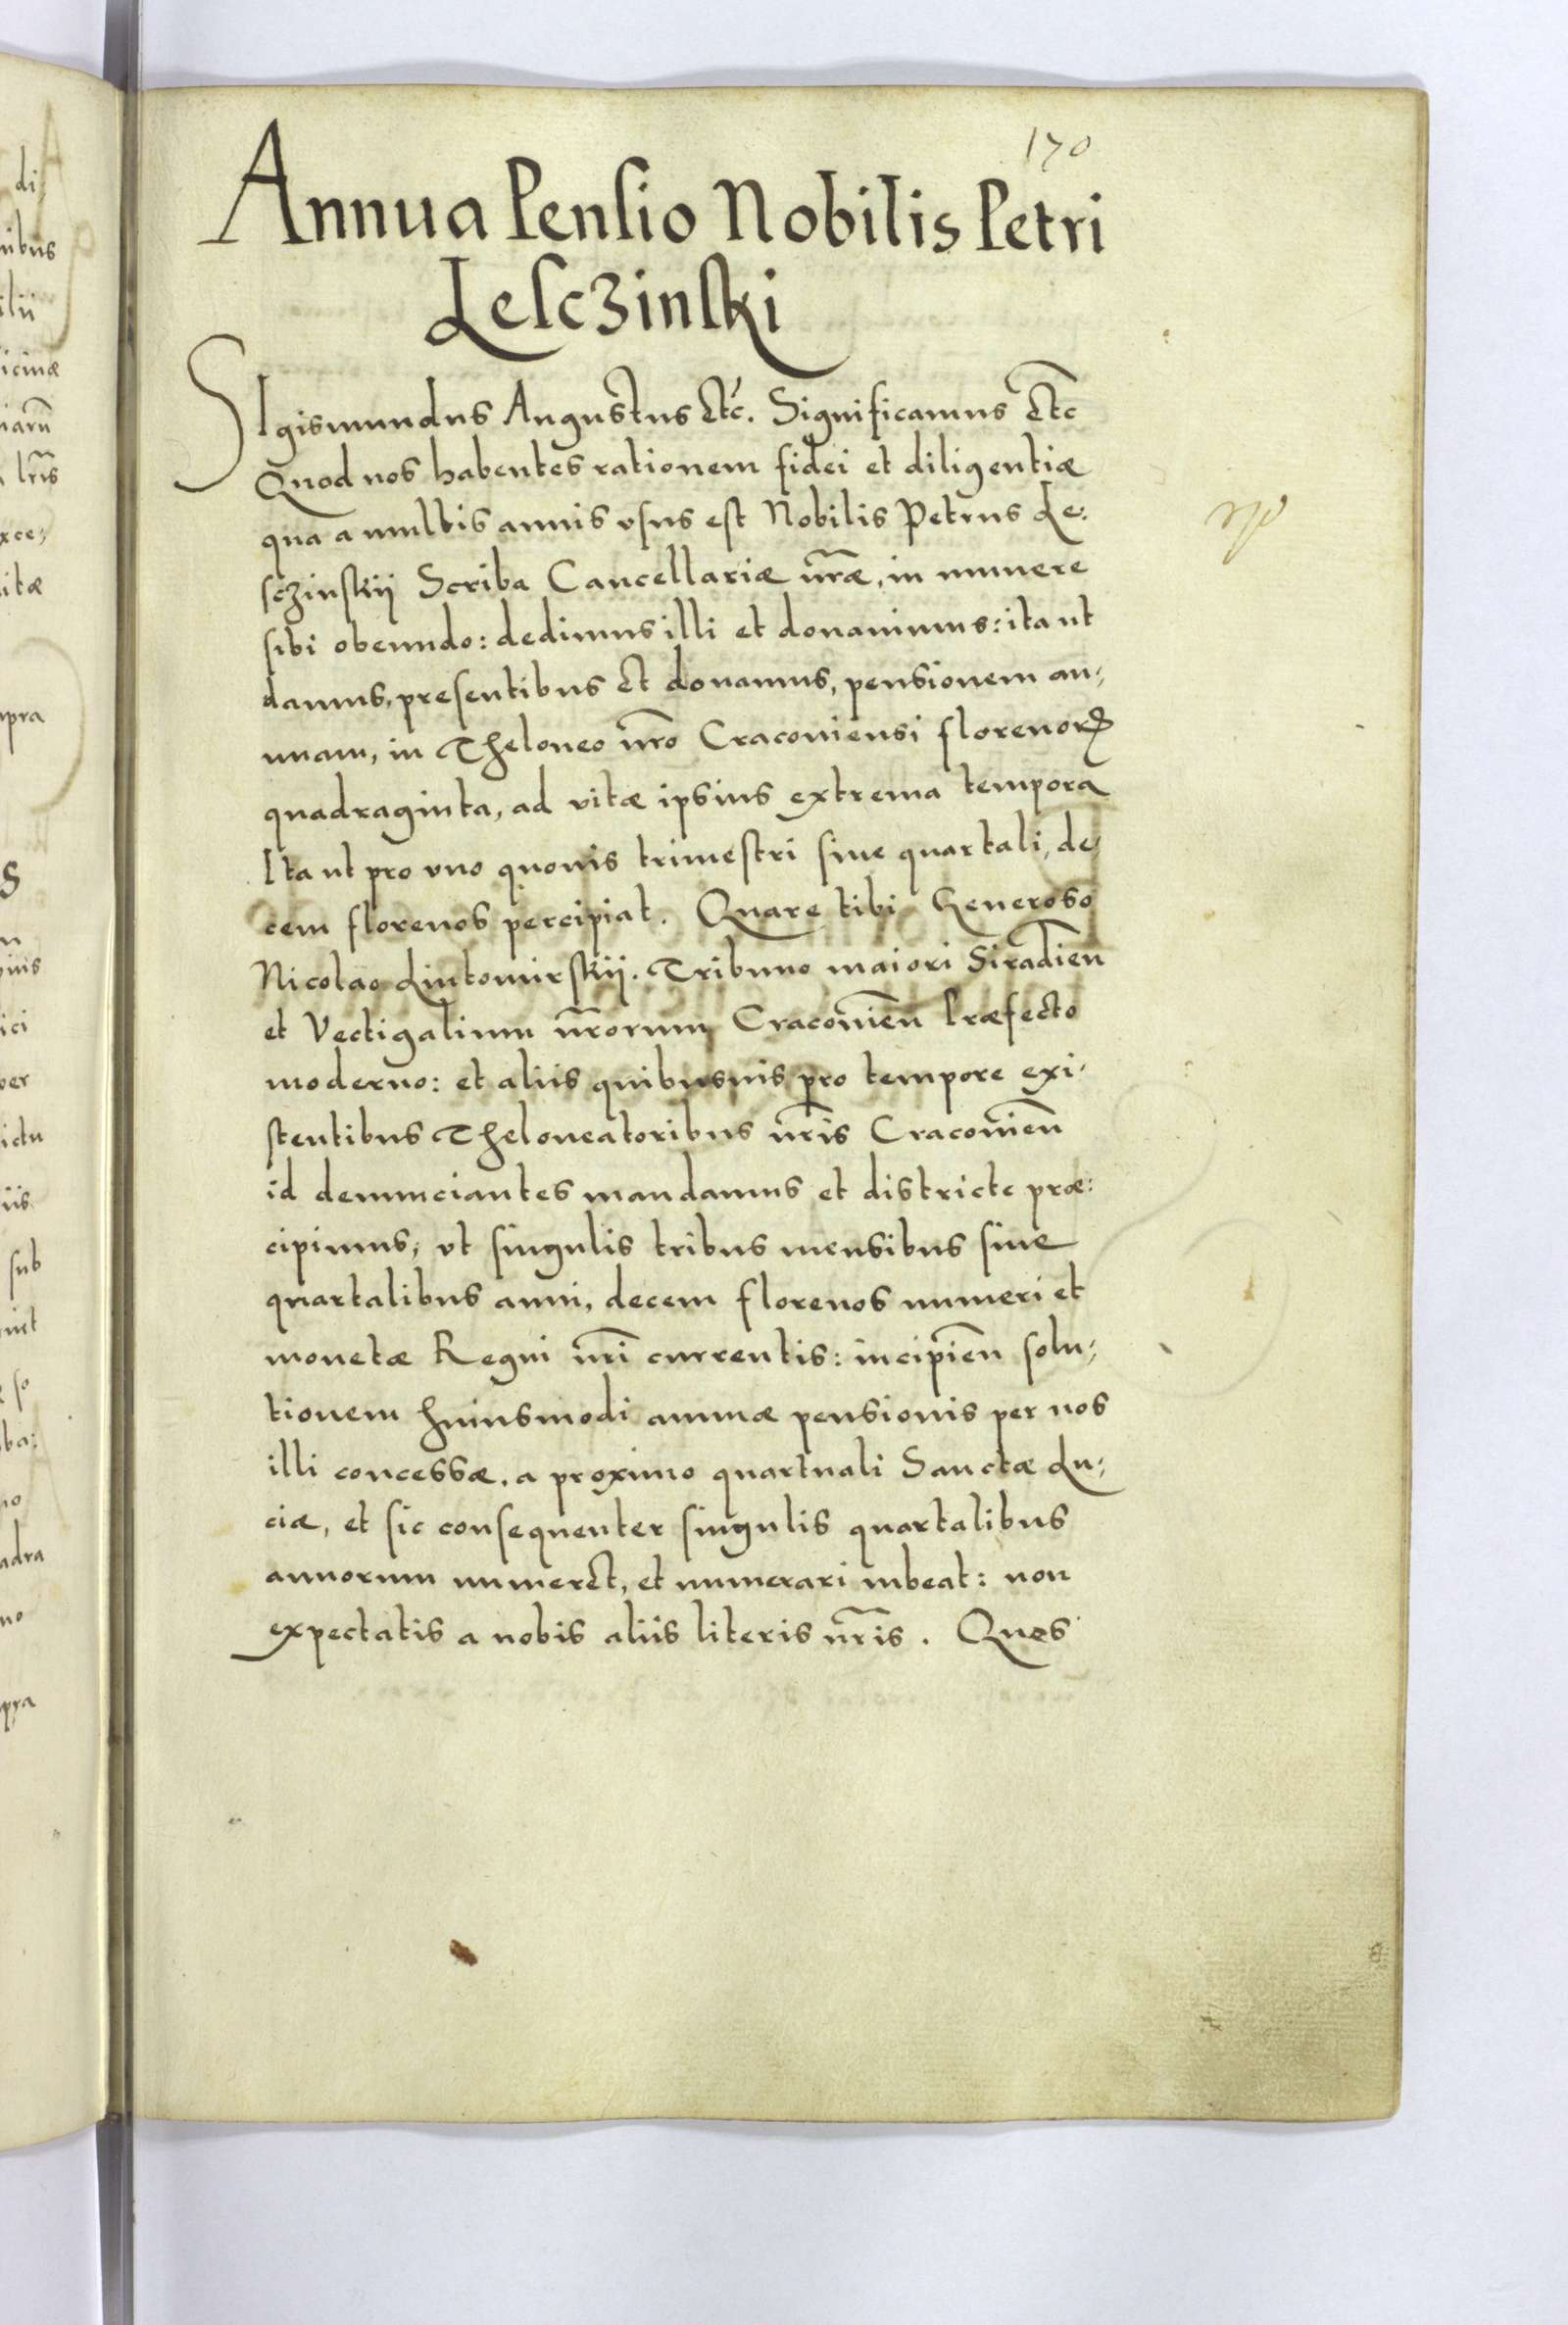 170
Annua Pensio Nobilis Petri
Lesczinski
SIgismundus Augustus etc. Significamus etc
Quod nos habentes rationem fidei et diligentiæ
qua a multis annis usus est Nobilis Petrus Le:
sczinskii Scriba Cancellariæ nr̃æ, in munere
sibi obeundo: dedimus illi et donavimus: ita ut
damus, presentibus et donamus, pensionem an,
nuam, in Theloneo nr̃o Cracoviensi florenorꝝ
quadraginta, ad vitæ ipsius extrema tempora
Ita ut pro uno quovis trimestri sive quartali, de,
cem florenos percipiat. Quare tibi Generoso
Nicolao Liutomirskii. Tribuno maiori Siradien̄
et Vectigalium nr̃orum Cracovien̄ Præfecto
moderno: et aliis quibusvis pro tempore exi,
stentibus Theloneatoribus nr̃is Cracovien̄
id denunciantes mandamus et districte præ:
cipimus, ut singulis tribus mensibus sive
quartalibus anni, decem florenos numeri et
monetæ Regni nr̃i currentis: incipien̄ solu,
tionem huiusmodi annuæ pensionis per nos
illi concessæ, a proximo quartuali Sanctæ Lu,
ciæ, et sic consequenter singulis quartalibus
annorum numeret, et numerari iubeat: non
expectatis a nobis aliis literis nr̃is. Quos